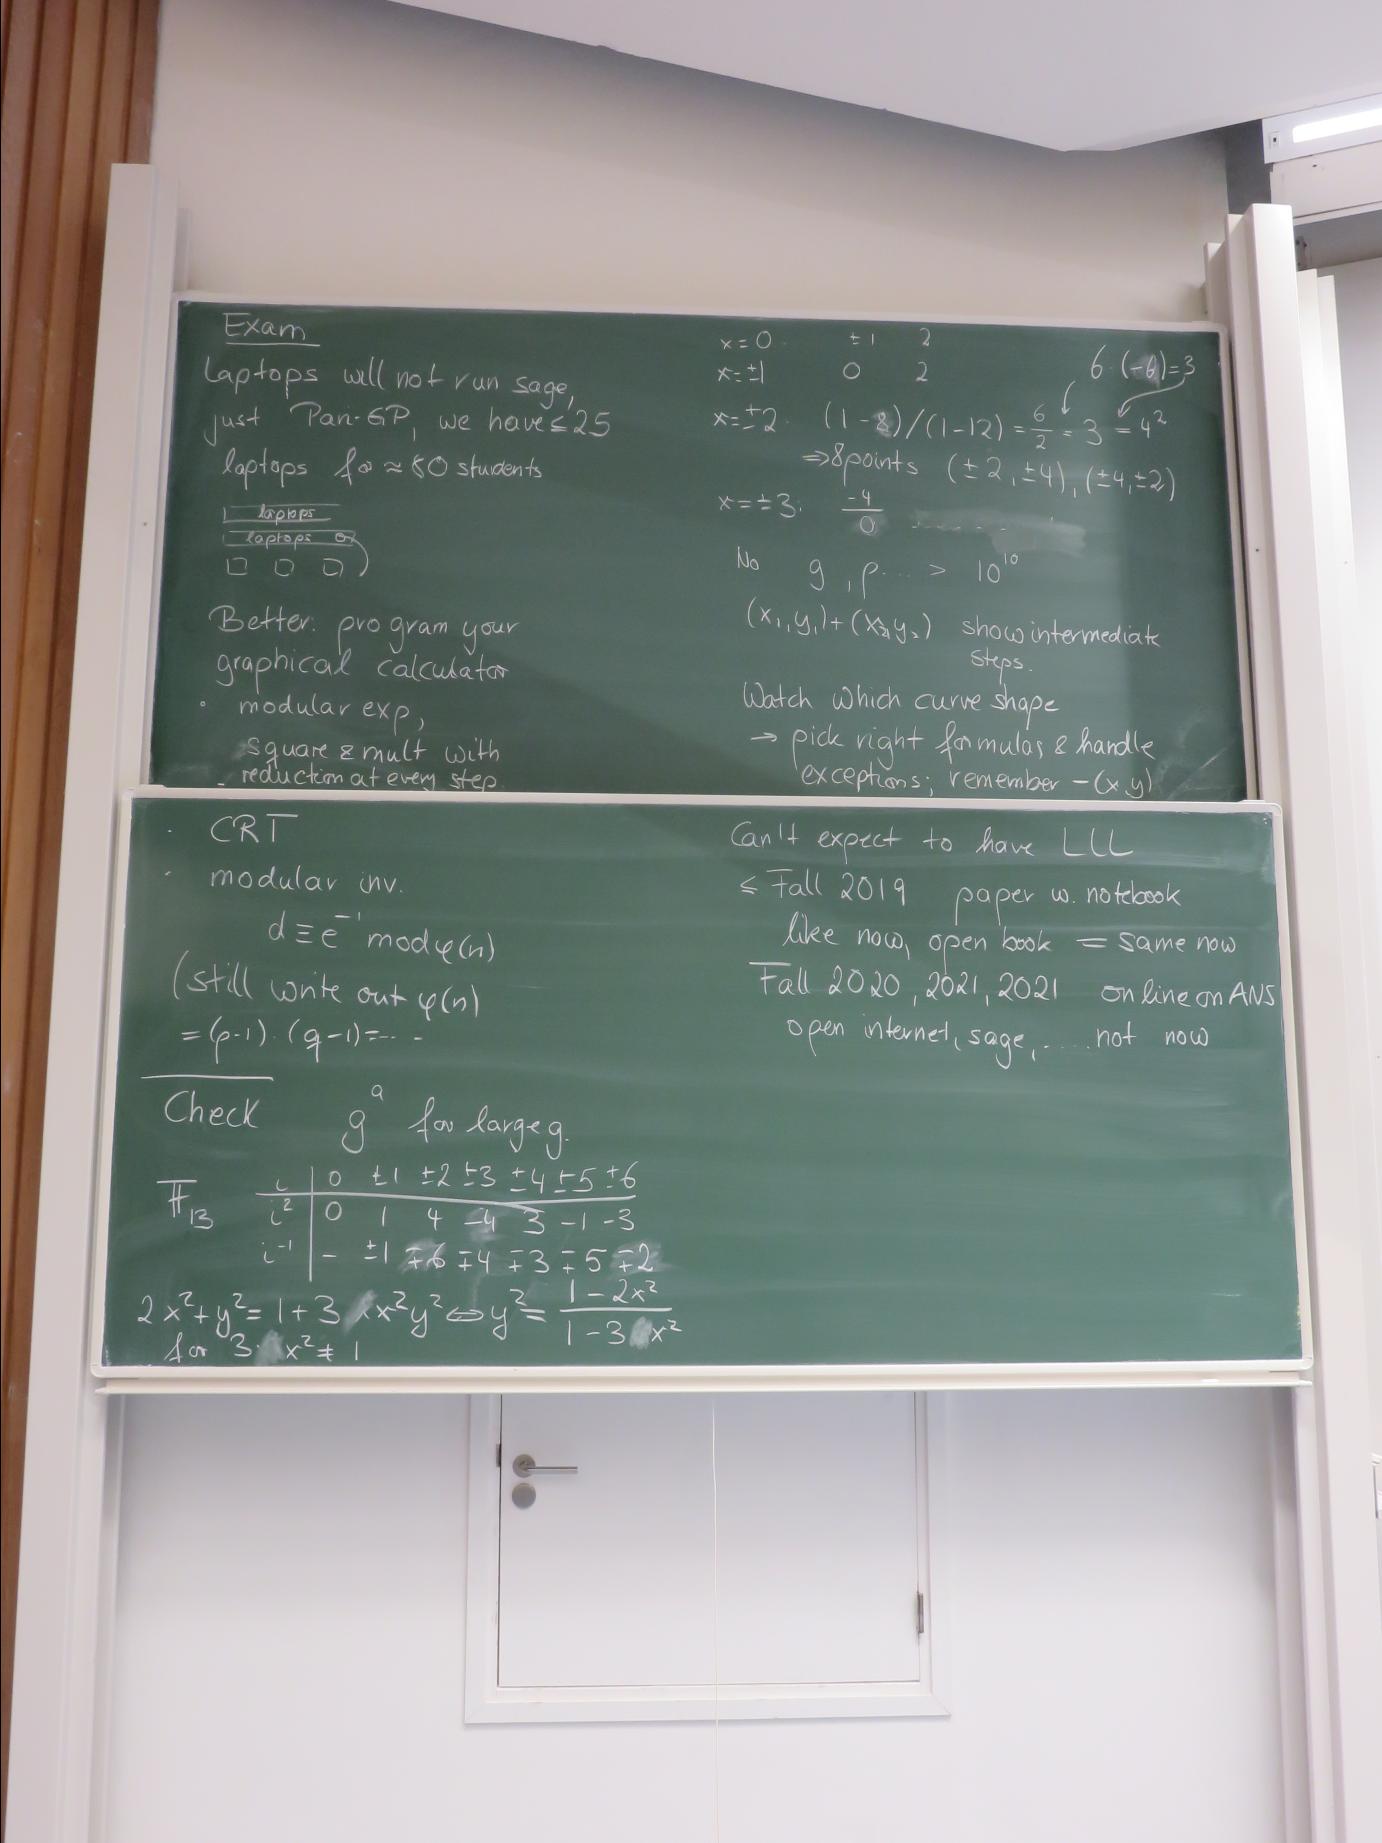 Exam
Laptops will not run sage,
just Pari-GP, we have ≤ 25
laptops for ≈ 80 students
laptops
laptops
Better: program your
graphical calculator
· modular exp,
square & mult with
reduction at every step.
x=0 ±1 2
x=±1 0 2
6·(-6)=3
x=±2: (1-8)/(1-12) = 6/2 = 3 = 4²
⇒ 8 points (±2,±4), (±4,±2)
x=±3: -4/0 ......
No g, p ... > 10¹⁰
(x₁,y₁)+(x₂,y₂) show intermediate
steps.
Watch which curve shape
→ pick right formulas & handle
exceptions; remember -(x,y)
· CRT
· modular inv.
d ≡ e⁻¹ mod φ(n)
(still write out φ(n)
= (p-1)·(q-1)=...
Check gᵃ for large g.
F₁₃
i | 0 ±1 ±2 ±3 ±4 ±5 ±6
i² | 0 1 4 -4 3 -1 -3
i⁻¹ | - ±1 ∓6 ∓4 ∓3 ∓5 ∓2
2x²+y²=1+3x²y² ⇔ y² = (1-2x²)/(1-3x²)
for 3·x²≠1
Can't expect to have LLL
≤ Fall 2019 paper w. notebook
like now, open book = same now
Fall 2020, 2021, 2021 online on ANS
open internet, sage, .... not now